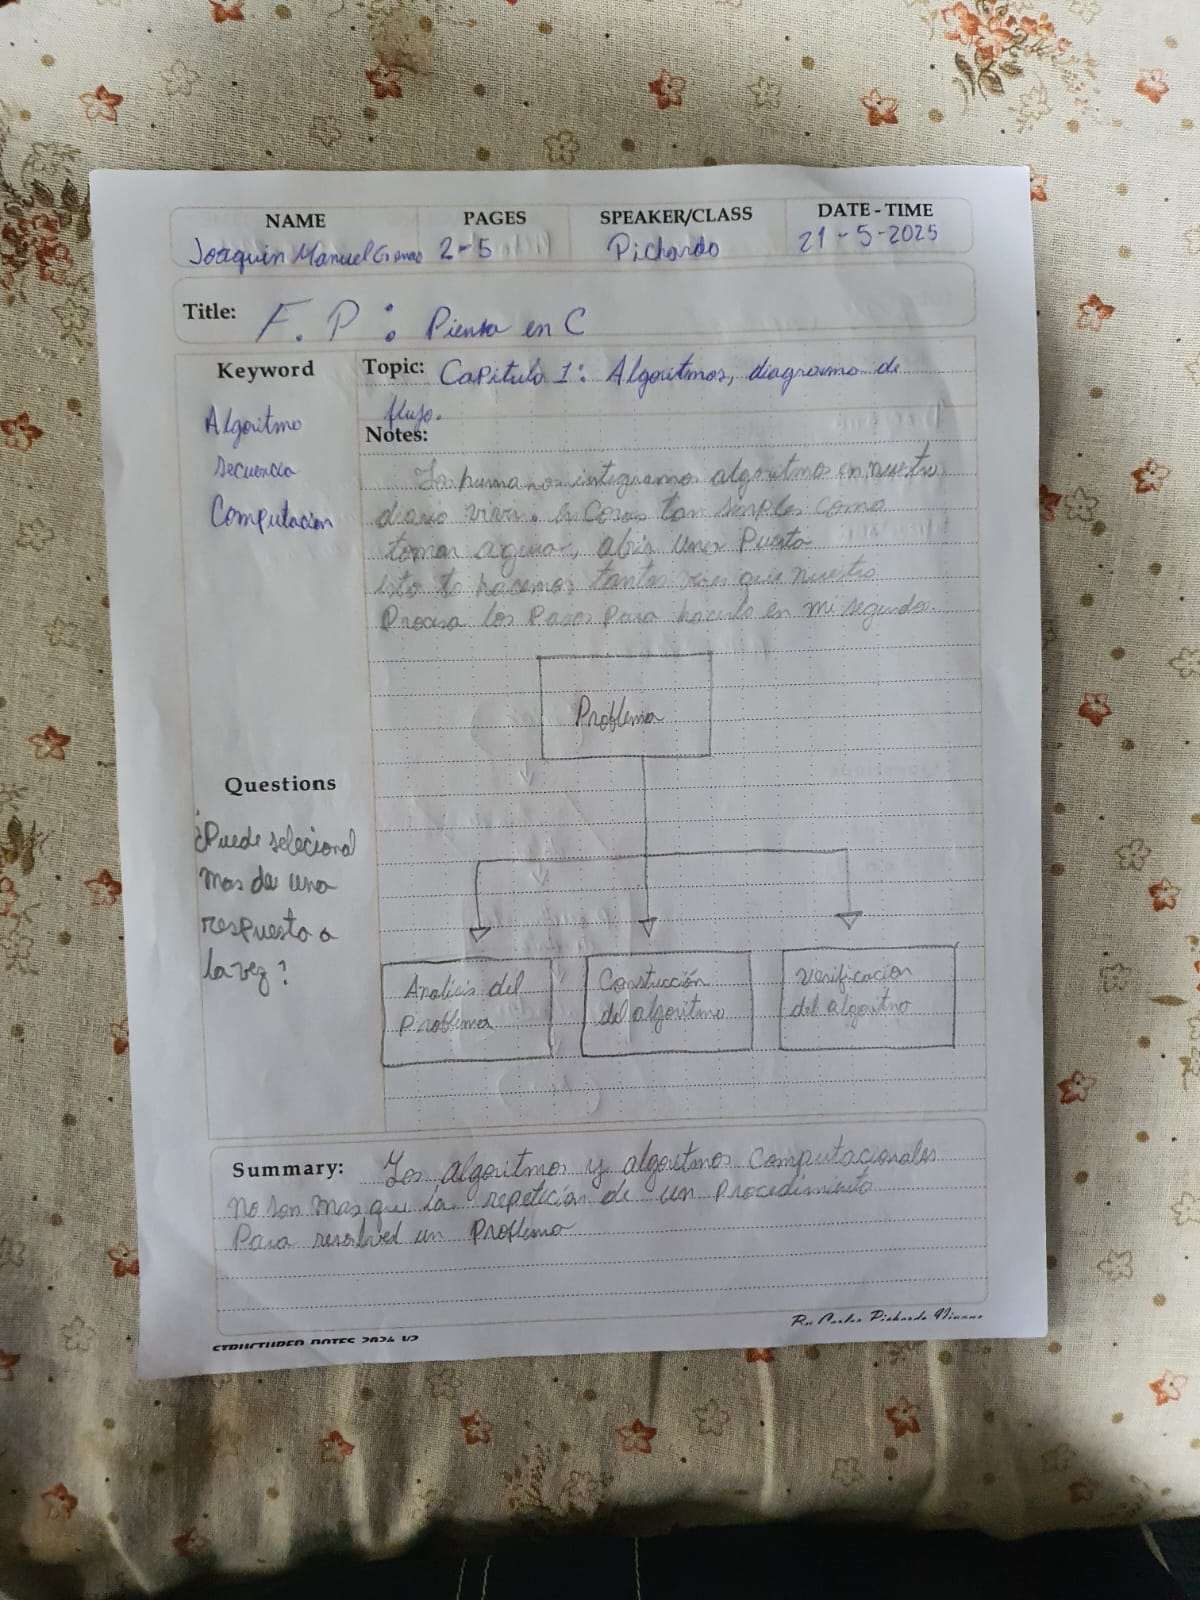 NAME
PAGES
SPEAKER/CLASS
DATE - TIME
Joaquin Manuel
2-5
Pichardo
21-5-2025
Title: F. P: Piensa en C
Keyword
Algoritmo
secuencia
Computacion
Topic: Capitulo 1: Algoritmos, diagrama de
flujo.
Notes:
Los humanos integramos algoritmo en nuestro
diario vivir. en Cosas tan simples como
tomar agua, abrir una Puerta
esto lo hacemos tantas veces que nuestro
Procesa los Pasos Para hacerlo en mi segundos.
Problema
Analisis del
Problema
Construcción
del algoritmo
Verificacion
del algoritmo
Questions
¿Puede selecional
mas de una
respuesta a
la vez?
Summary: Los algoritmos y algoritmos Computacionales
No son mas que la repetición de un Procedimiento
Para resolved un Problema
By Carlos Pichardo Viuque
STRUCTURED NOTES 2024 V2